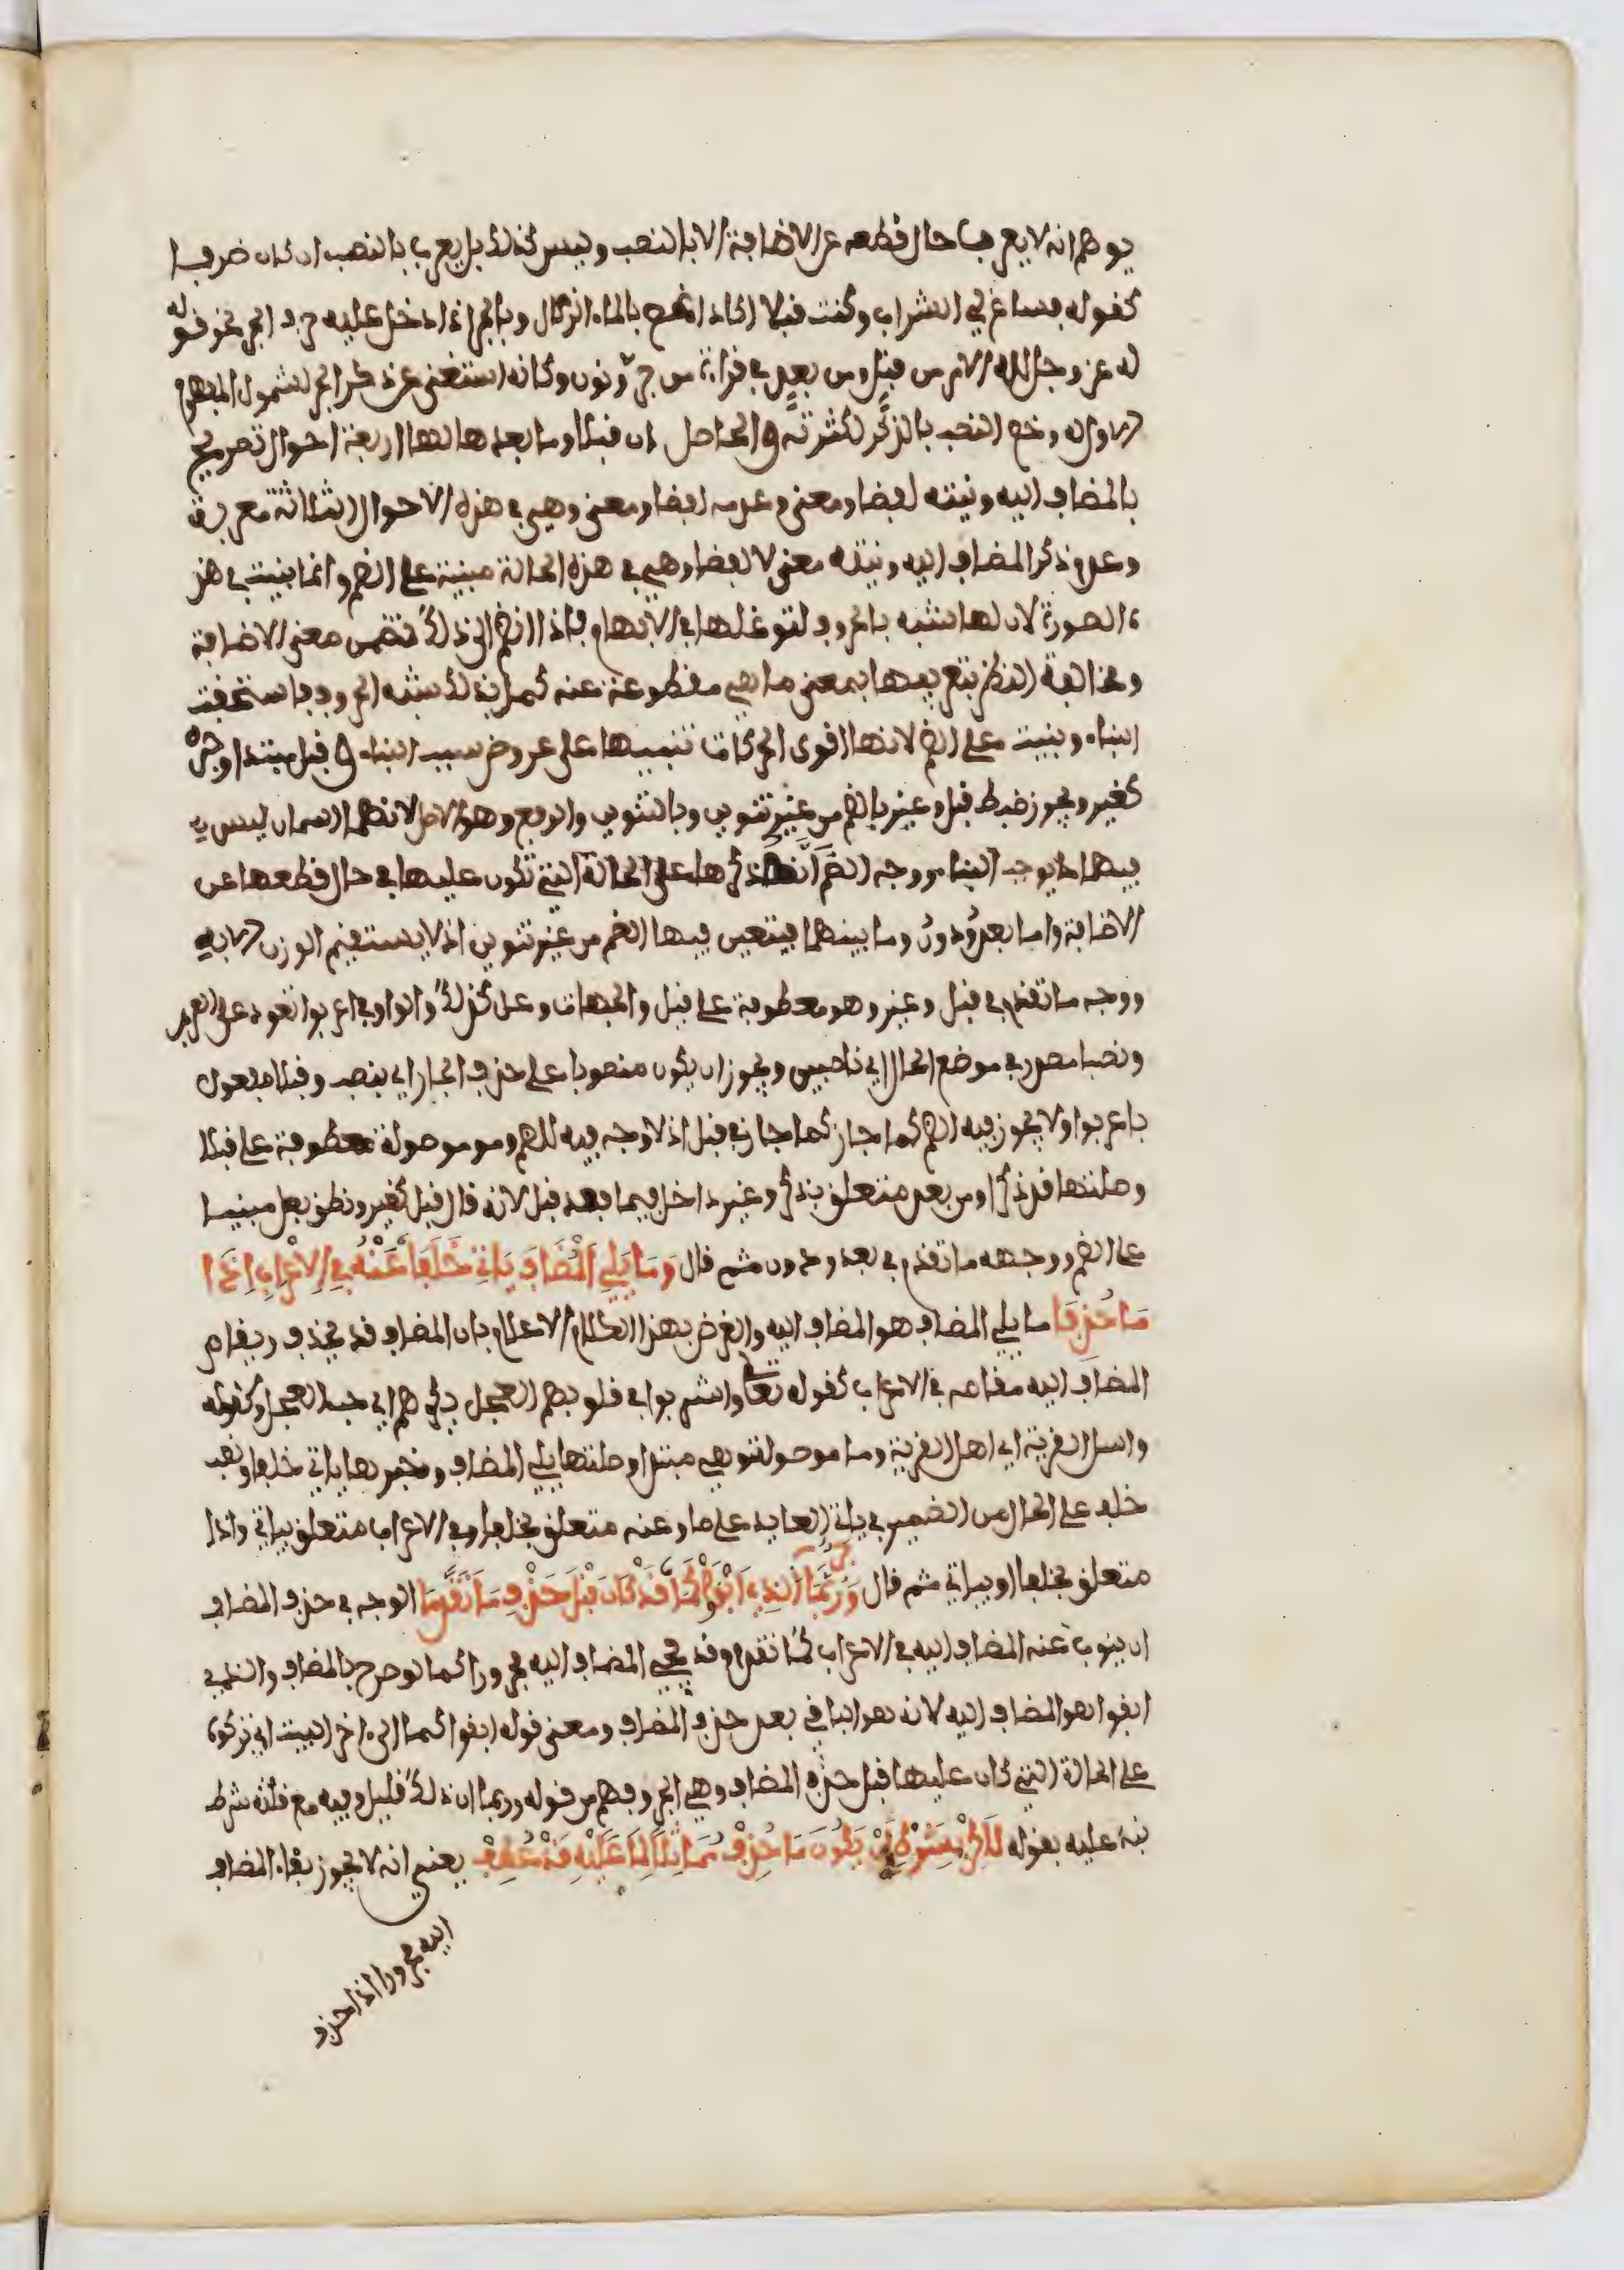 يوهم انه لا يعرب في حال قطعه عن الاضافة الا بالنصب وليس كذلك بل يعرب بالنصب ان كان ظرفا
كقوله فساغ لي الشراب وكنت قبلا اكاد اغص بالماء الزلال وبالجر اذا دخل عليه حرف الجر نحو قوله
له عز وجل لله الامر من قبل ومن بعد في قراءة من جر ونون وكانه استغنى عن ذكر الجر لشمول المفهوم
وخص النصب بالذكر لكثرته والحاصل ان قبلا وما بعدها لها اربعة احوال تصريح
بالمضاف اليه ونيته لفظا ومعنى وعدمه لفظا ومعنى وهي في هذه الاحوال الثلاثة معربة
وعدم ذكر المضاف اليه ونيته معنى لا لفظا وهي في هذه الحالة مبنية على الضم وانما بنيت في هذ
ه الصورة لان لها شبه بالحروف لتوغلها في الابهام فاذا انضم الى ذلك تضمن معنى الاضافة
ومخالفة النظائر بتعريفها بمعنى ما هي مقطوعة عنه كمل بذلك شبه الحروف فاستحقت
البناء وبنيت على الضم لانها اقوى الحركات تنبيها على عروض سبب البناء وقبل مبتدا وخبره
كغير ويجوز ضبط قبل وغير بالضم من غير تنوين وبالتنوين والرفع وهو الاصل لانهما اسمان ليس في
فيهما ما يوجب البناء ووجه الضم انه ذكرها على الحالة التي تكون عليها في حال قطعها عن
الاضافة واما بعد ودون وما بينهما فيتعين فيها الضم من غير تنوين اذ لا يستقيم الوزن الا به
ووجه ما تقدم في قبل وغير وهو معطوفة على قبل والجهات وعل كذلك والواو في اعربوا تعود على العرب
ونصبا مصدر في موضع الحال اي ناصبين ويجوز ان يكون منصوبا على حذف الجار اي بنصب وقبلا مفعول
باعربوا ولا يجوز فيه الضم كما جاز كما جاز في قبل اذ لا وجه فيه للضم وما موصولة معطوفة على قبلا
وصلتها قد ذكرا ومن بعد متعلق بذكر وغير داخل فيما بعد قبل لانه قال قبل كغير ونطق بعل مبنيا
على الضم ووجهه ما تقدم في بعد ودون ثم قال وَمَا يَلِي الْمُضَافَ يَاتِي خَلَفَا عَنْهُ فِي الاِعْرَابِ إِذَا
مَا حُذِفَا ما يلي المضاف هو المضاف اليه والغرض بهذا الكلام الاعلام بان المضاف قد يحذف ويقام
المضاف اليه مقامه في الاعراب كقوله تعالى واشربوا في قلوبهم العجل بكفرهم اي حب العجل وكقوله
واسال القرية اي اهل القرية وما موصولة وهي مبتدا وصلتها يلي المضاف وخبرها ياتي خلفا ونصب
خلفا على الحال من الضمير في ياتي العايد على ما وعنه متعلق بخلفا وفي الاعراب متعلق بياتي واذا
متعلق بخلفا او بياتي ثم قال وَرُبَّمَا جَرُّوا الَّذِي أَبْقَوْا كَمَا قَدْ كَانَ قَبْلَ حَذْفِ مَا تَقَدَّمَا الوجه في حذف المضاف
ان ينوب عنه المضاف اليه في الاعراب كما تقدم وقد يجي المضاف اليه مجرورا كما لو صرح بالمضاف والذي
ابقوا هو المضاف اليه لانه هو الباقي بعد حذف المضاف ومعنى قوله ابقوا كما الى اخر البيت اي تركوه
على الحالة التي كان عليها قبل حذف المضاف وهي الجر وفهم من قوله وربما ان ذلك قليل وفيه مع قلته شرط
نبه عليه بقوله لَكِنْ بِشَرْطِ أَنْ يَكُونَ مَا حُذِفْ مُمَاثِلًا لِمَا عَلَيْهِ قَدْ عُطِفْ يعني انه لا يجوز بقاء المضاف
اليه مجرورا اذا حذف